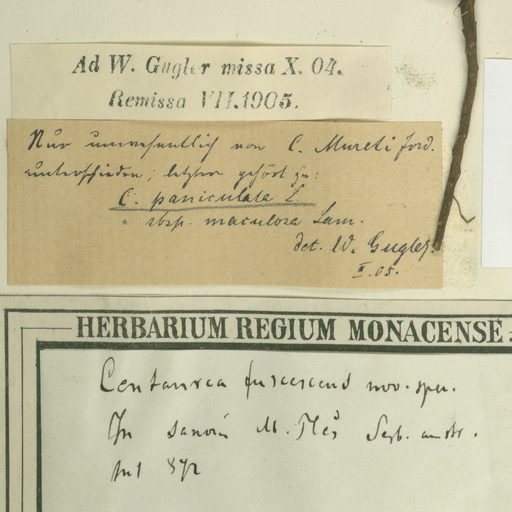 Ad W. Gugler missa X. 04.
Remissa VII.1905.
Nur unwesentlich von C. Mureti Jord.
unterschieden; letztere gehört zu:
C. paniculata L.
sbsp. maculosa Lam.
det. W. Gugler.
II. 05.
HERBARIUM REGIUM MONACENSE
Centaurea fuscescens nov. spec.
In M.